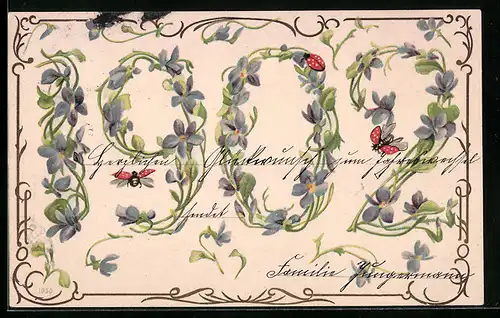 1902
Herzlichen Glückwunsch zum Jahreswechsel
sendet
Familie Jungermann